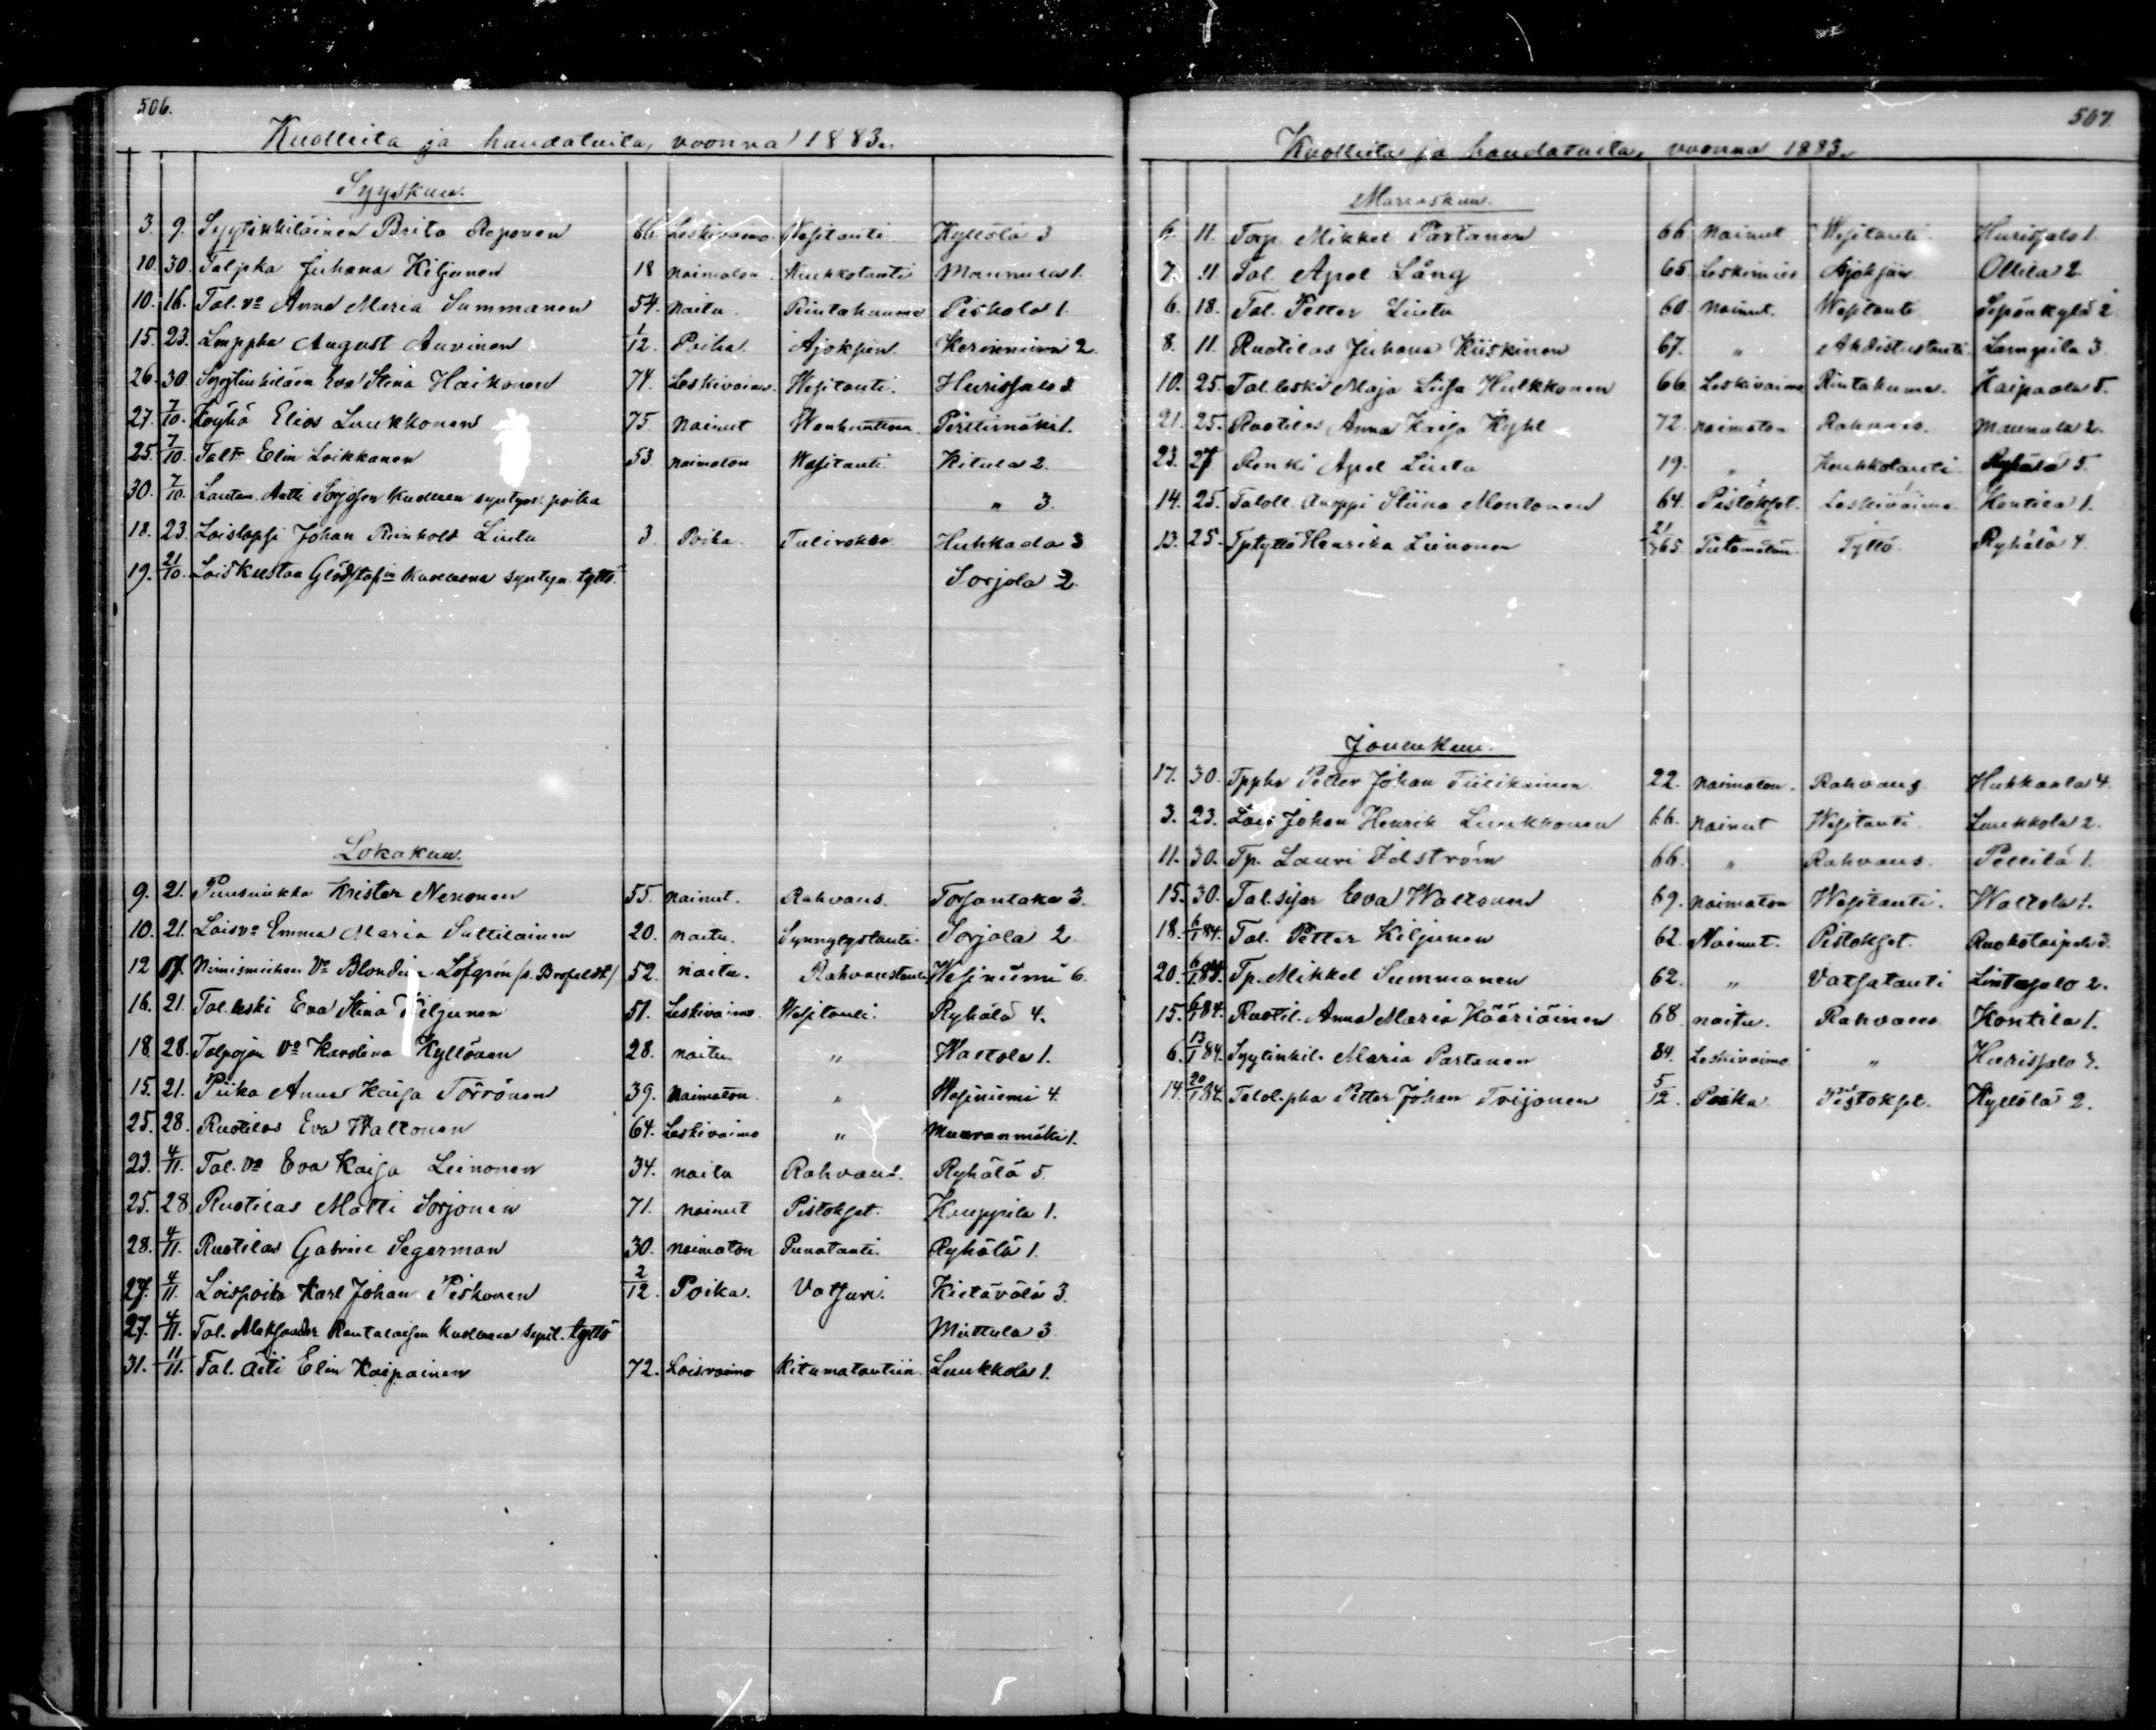 506.
Kuolleita ja haudatuita, vuonna 1883.
Syyskuu.
3. 9. Syytinkiläinen Brita Reponen 66 Leskivaimo Wesitauti Kyllölä 3
10. 30. Talpka Juhana Kiljunen 18 naimaton Keuhkotauti Maunula 1.
10. 16. Tal. vo Anna Maria Summanen 54. naitu Rintakuume Piskola 1.
15. 23. Lmppka August Auvinen 1/12 Poika Ajoksiin Kerinniemi 2.
26. 30 Syytinkiläin Eva Stina Haikonen 74. Leskivaimo. Wesitauti. Hurissalo 2
27. 7/10. Köyhä Elias Luukkonen 75 Nainut Wanhuuteen Piritimäki 1.
25. 7/10. Talt Elin Loikkanen 53 naimaton Wesitauti Kitula 2.
30. 7/10. Lautam. Antti Sorjosen kuolleen syntyn. poika " 3.
18. 23. Loislapsi Johan Reinhold Liuta 3 Poika. Tulirokko Huhkaala 3
19. 21/10. Lois Kustaa Glödstafin kuolleena syntyn. tyttö Sorjola 2
Lokakuu.
9. 21. Puuseukko Krister Nenonen 55. nainut. Rahvaus. Torsantaka 3.
10. 21. Loisvo Emma Maria Suttilainen 20. naitu. Synnytystauti. Sorjola 2
12 17. Nimismiehen Vo Blondina Löfgrén (s. Brofeldt) 52. naitu. Rahvaustauti Wesiniemi 6.
16. 21. Tal. leski Eva Stina Kiljunen 51. Leskivaimo. Wesitauti. Ryhälä 4.
18. 28. Talpojan Vo Karolina Kyllönen 28. naitu " Waltola 1.
15. 21. Piika Anna Kaisa Törrönen 39. Naimaton. " Wesiniemi 4.
25. 28. Ruotilas Eva Waltonen 64. Leskivaimo " Muuranmäki 1.
23. 4/11. Tal. Vo Eva Kaisa Leinonen 34. naitu Rahvaus. Ryhälä 5.
25. 28 Ruotilas Matti Sorjonen 71. nainut Pistokset. Kauppila 1.
28. 4/11. Ruotilas Gabriel Segerman 30. naimaton Punatauti. Ryhälä 1.
27. 4/11. Loispoika Karl Johan Piskonen 2/12. Poika. Vatsuri. Kietävälä 3.
27. 4/11. Tal. Aleksander Rautalaisen kuolleena synt. tyttö Miettula 3
31. 11/11. Tal. äiti Elin Kaipainen 72. Loisvaimo Kitumatautiin. Luukkola 1.
507.
Kuolleita ja haudatuita, vuonna 1883.
Marraskuu.
6. 11. Torp. Mikkel Partanen 66 Nainut Wesitauti Hurissalo 1.
7. 11. Tal. Apel Lång 65 Leskimies Ajoksiin Ollila 2
6. 18. Tal. Petter Liuta 60 Nainut. Wesitauti Sepänkylä 2.
8. 11. Ruotilas Juhana Kiiskinen 67. " Ahdistustauti. Lampila 3.
10. 25. Tal. leski Maja Liisa Hulkkonen 66 Leskivaimo Rintakume. Kaipaala 5.
21. 25. Ruotilas Anna Kaisa Kyhl 72. naimaton Rahvaus. Maunula 2.
23. 27 Renki Apel Liuta 19. " Keuhkotauti Ryhälä 5.
14. 25. Taloll. anoppi Stiina Montonen 64. Pistokset. Leskivaimo Kontila 1.
13. 25. Tptyttö Henrika Leinonen 21/365. Tietämätön Tyttö Ryhälä 4.
Jouluukuu.
17. 30. Tppka Petter Johan Tiilikainen 22. naimaton. Rahvaus. Huhkaala 4.
3. 23. Lois Johan Henrik Luukkonen 66. nainut Wesitauti Luukkola 2.
11. 30. Tp. Lauri Idström 66. " Rahvaus. Pellilä 1.
15. 30. Tal. sisar Eva Waltonen 69. naimaton Wesitauti. Waltola 1.
18. 6/1 84. Tal. Petter Kiljunen 62. Nainut. Pistokset. Ruokotaipale 3.
20. 6/1 84. Tp. Mikkel Summanen 62. " Vatsatauti Lintusalo 2.
15. 6/1 84. Ruotil. Anna Maria Kääriäinen 68. naitu. Rahvaus Kontila 1.
6. 13/1 84. Syytinkil. Maria Partanen 84. Leskivaimo " Hurissalo 7.
14. 20/1 84. Talol. pka Petter Johan Toijonen 5/12 Poika Pistokset. Kyllölä 2.